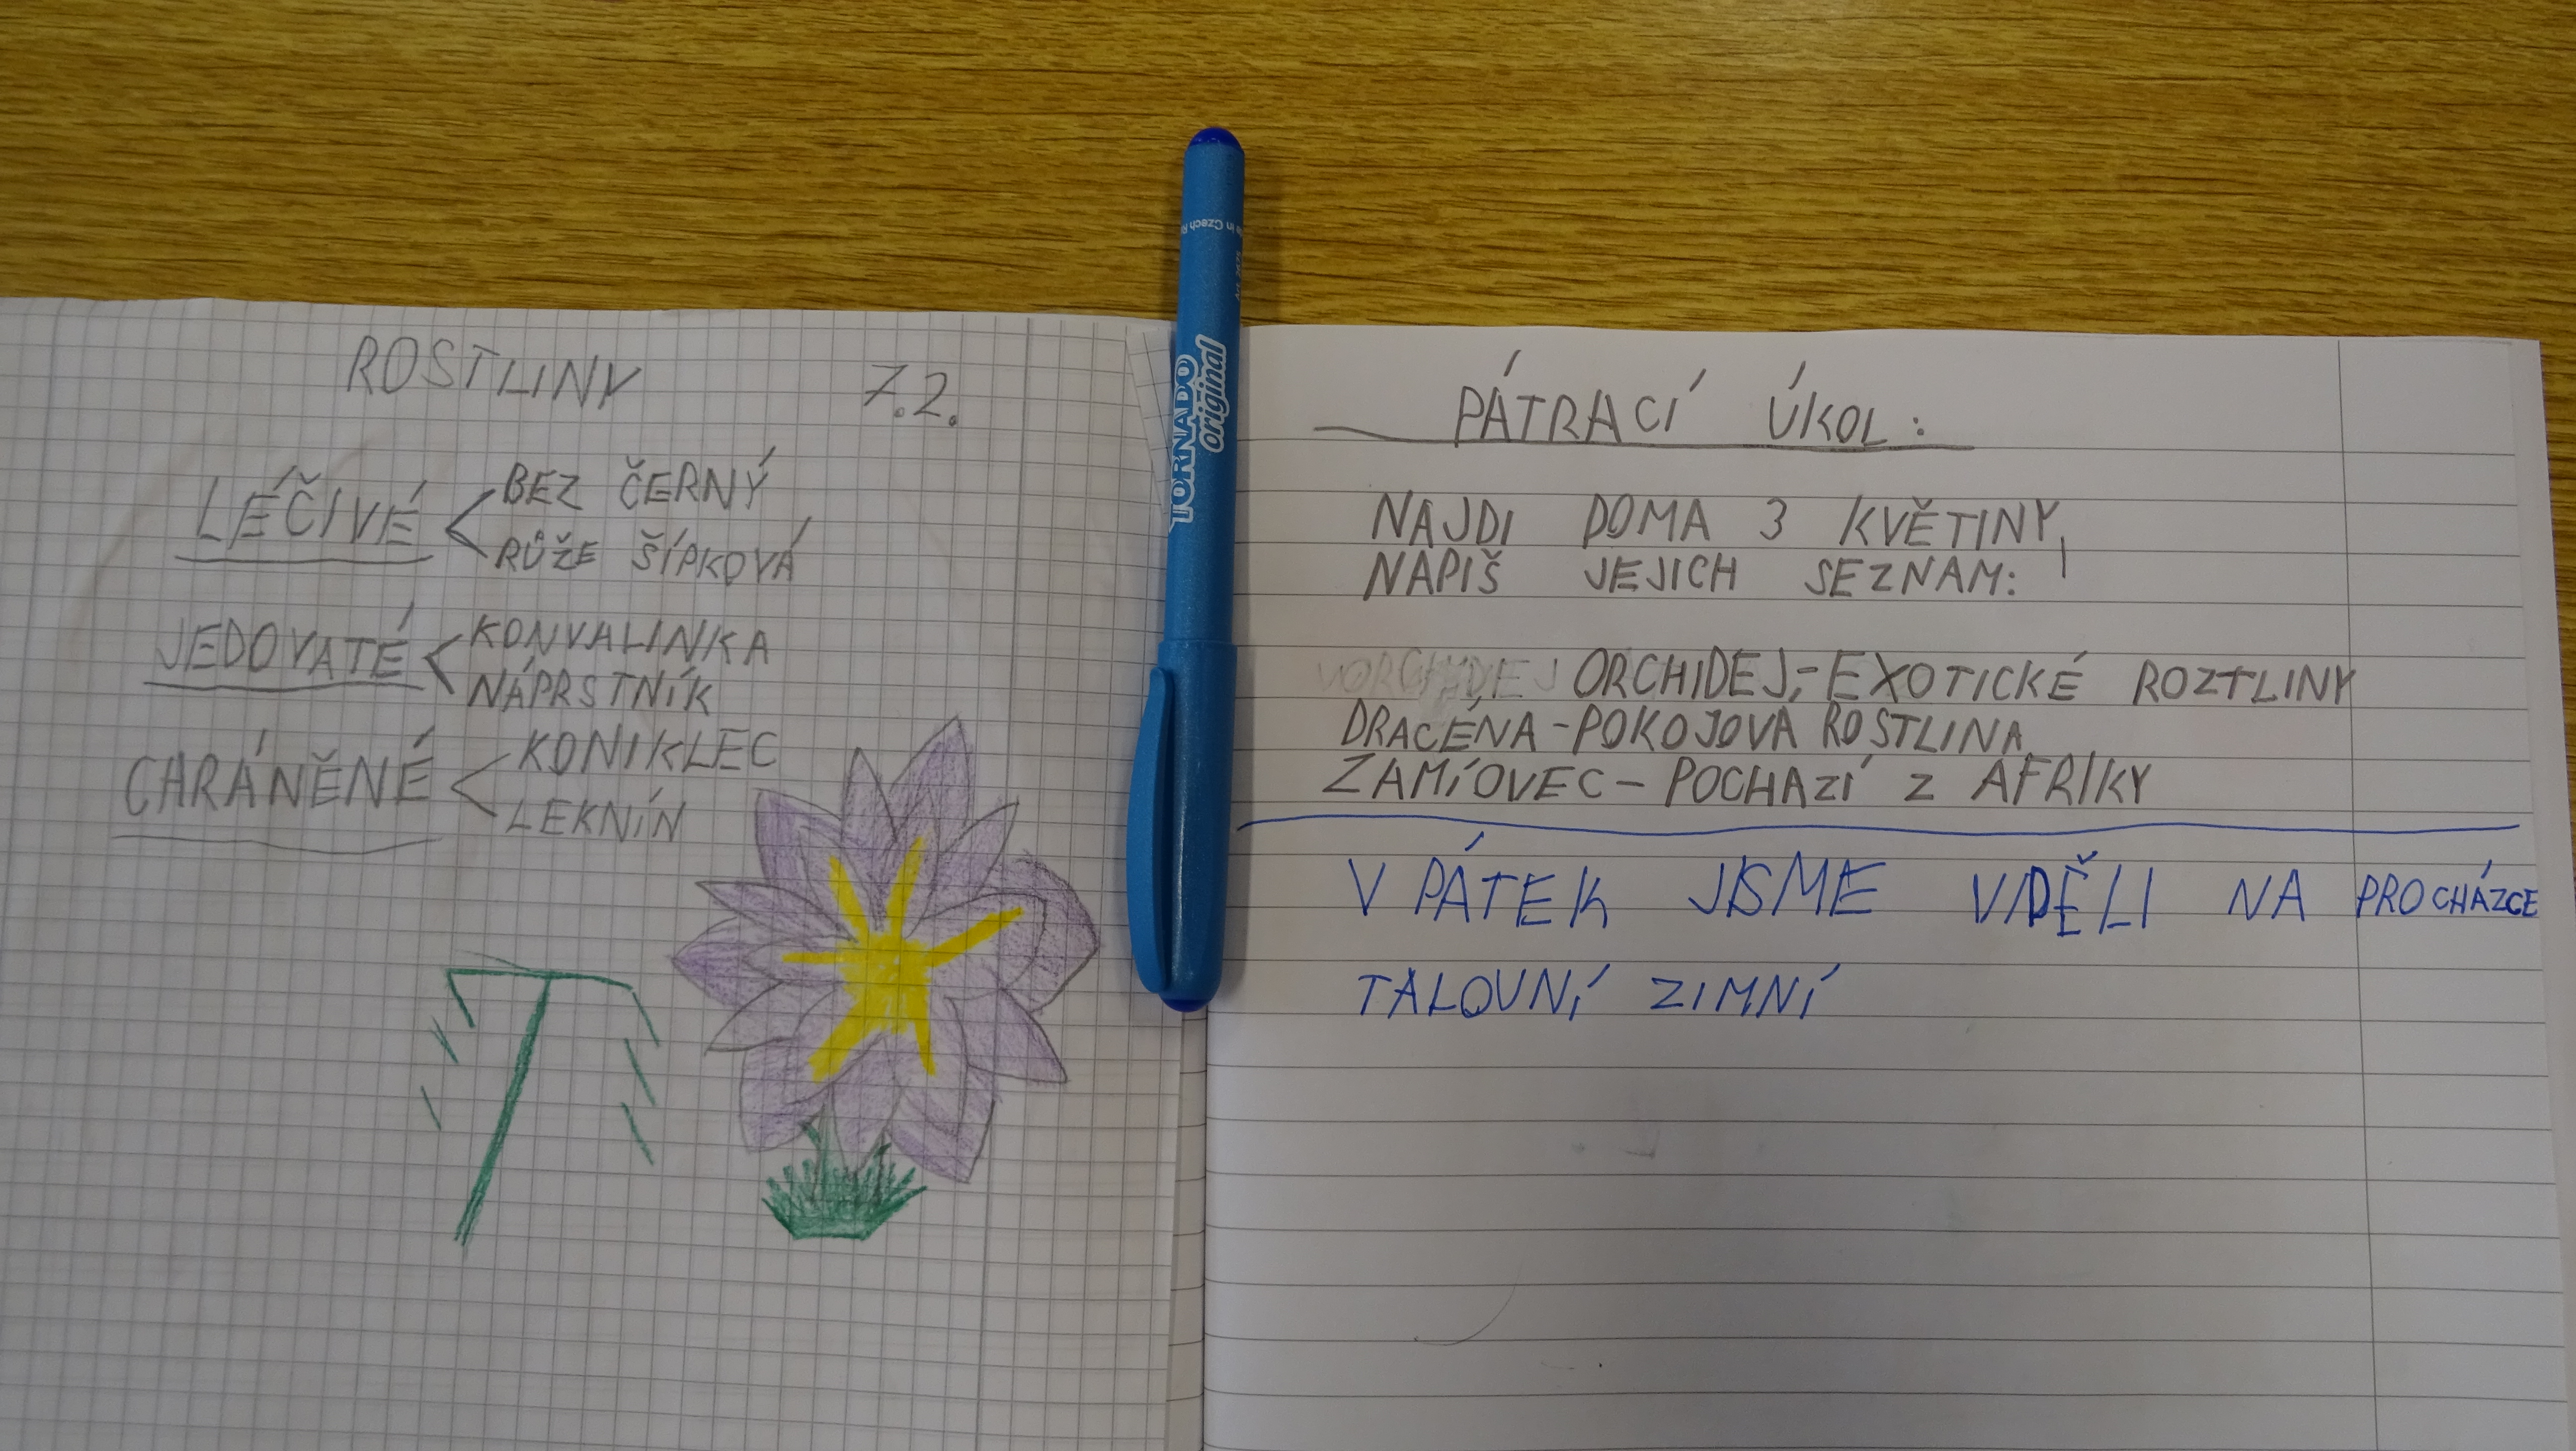 ROSTLINY 7.2.
LÉČIVÉ
BEZ ČERNÝ
RŮŽE ŠÍPKOVÁ
JEDOVATÉ
KONVALINKA
NÁPRSTNÍK
CHRÁNĚNÉ
KONIKLEC
LEKNÍN
TORNADO
original
in Czech
PÁTRACÍ ÚKOL:
NAJDI DOMA 3 KVĚTINY,
NAPIŠ JEJICH SEZNAM:
ORCHIDEJ,-EXOTICKÉ ROZTLINY
DRACÉNA-POKOJOVÁ ROSTLINA
ZAMÍOVEC-POCHAZÍ Z AFRIKY
V PÁTEK JSME VIDĚLI NA PROCHÁZCE
TALOVNÍ ZIMNÍ